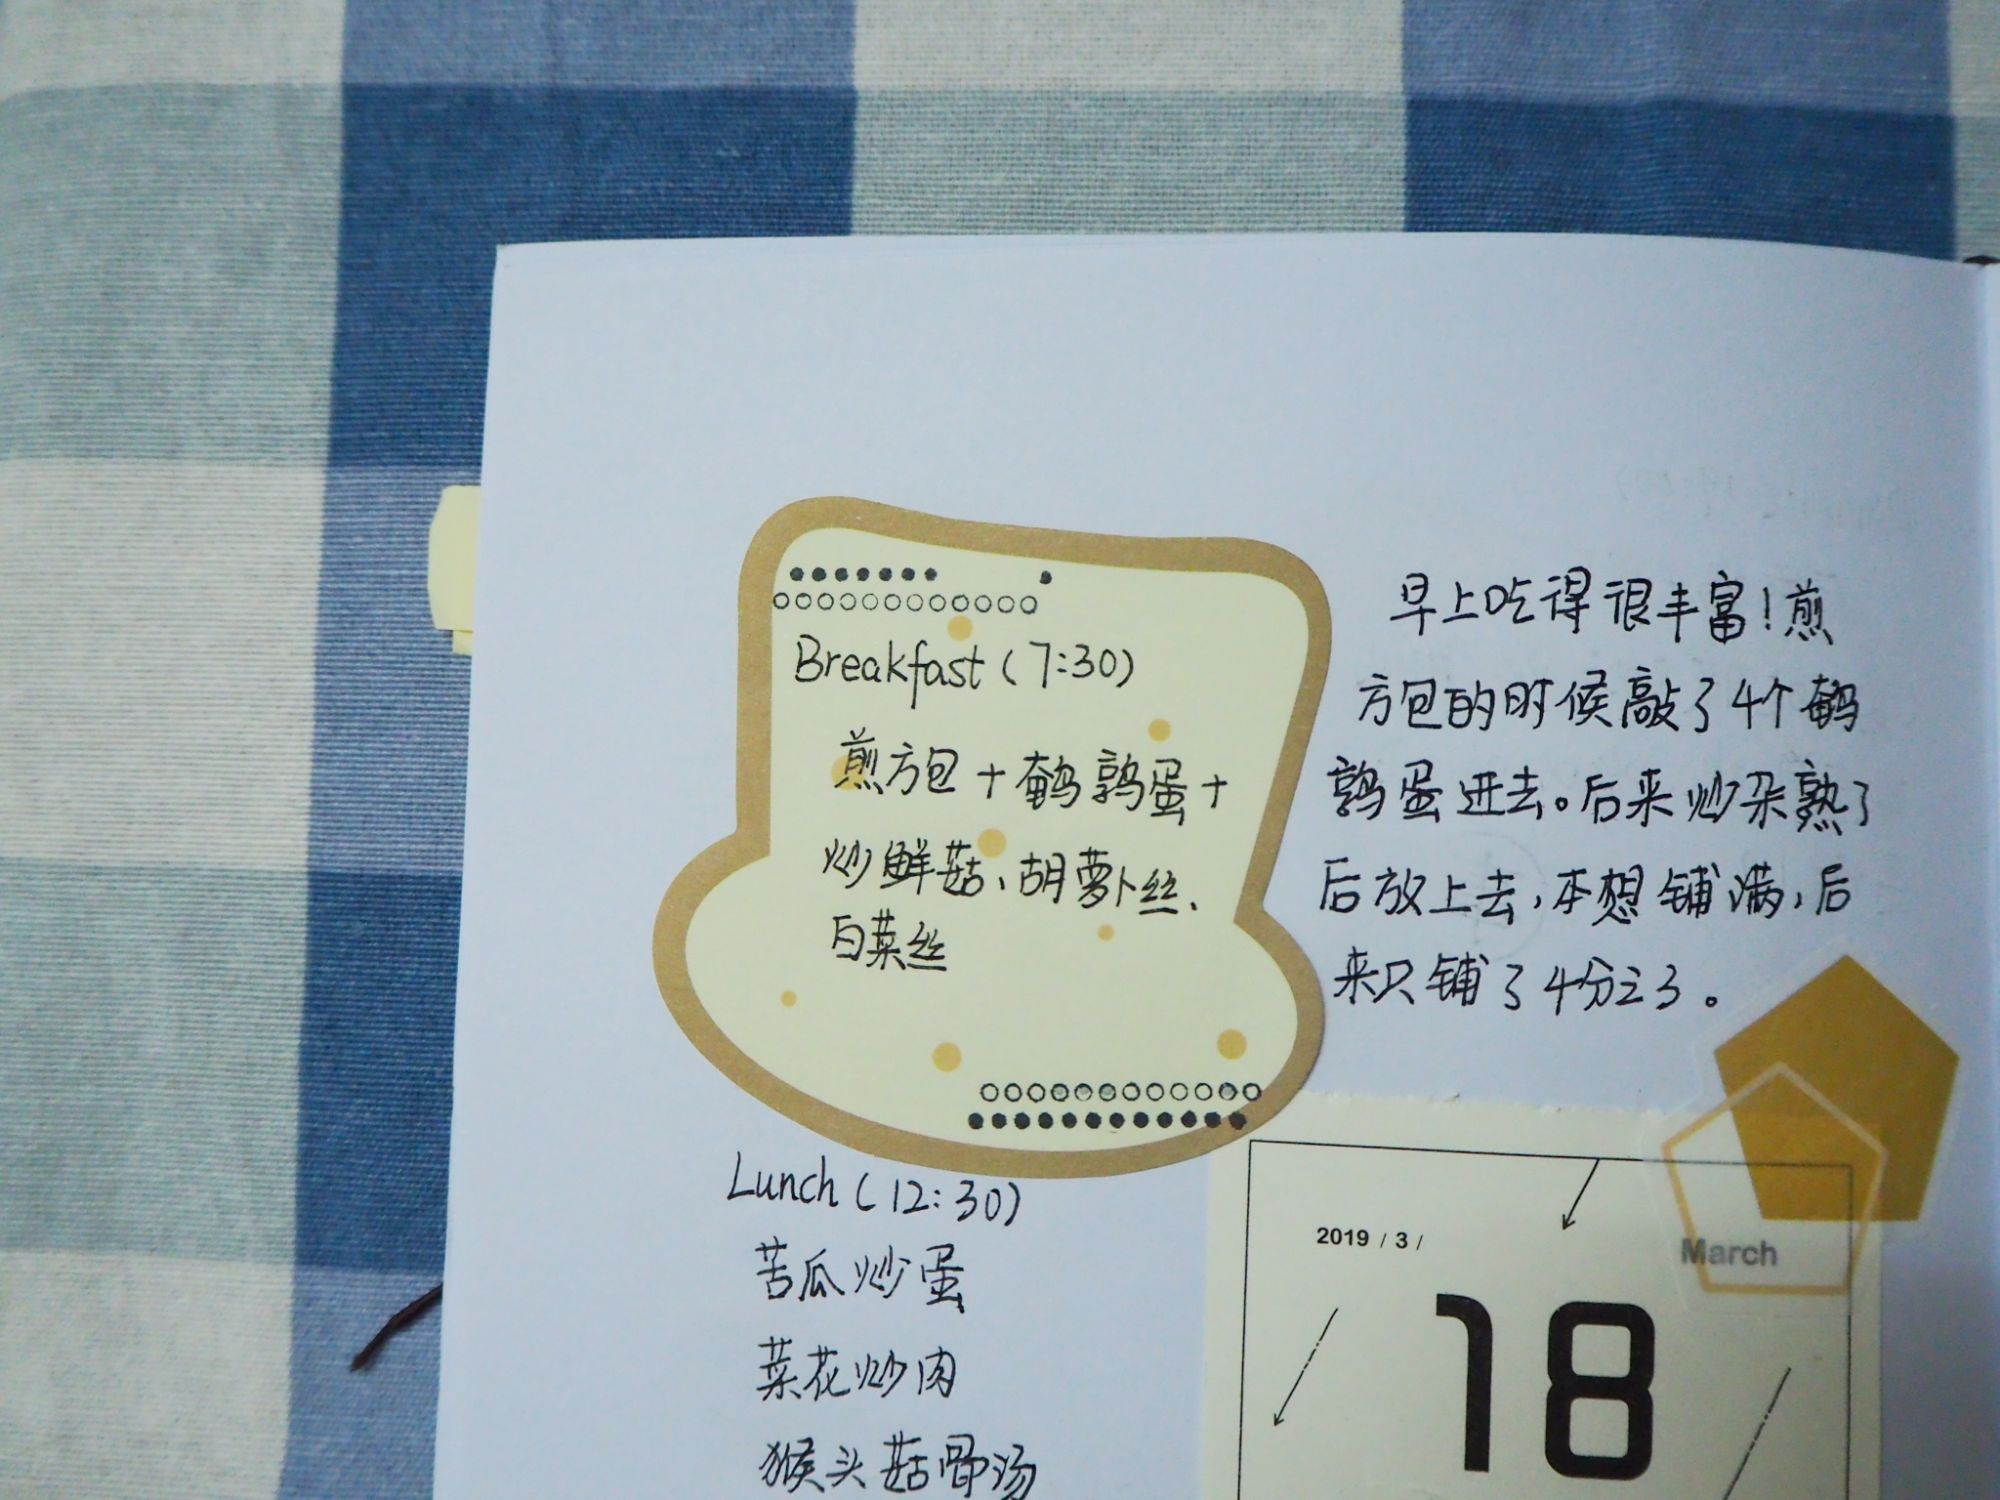 Breakfast (7:30)
煎方包+鹌鹑蛋+
炒鲜菇、胡萝卜丝、
白菜丝
早上吃得很丰富!煎
方包的时候敲了4个鹌
鹑蛋进去。后来炒杂熟了
后放上去,本想铺满,后
来只铺了4分之3。
Lunch (12:30)
苦瓜炒蛋
菜花炒肉
猴头菇骨汤
2019 / 3 /
March
18